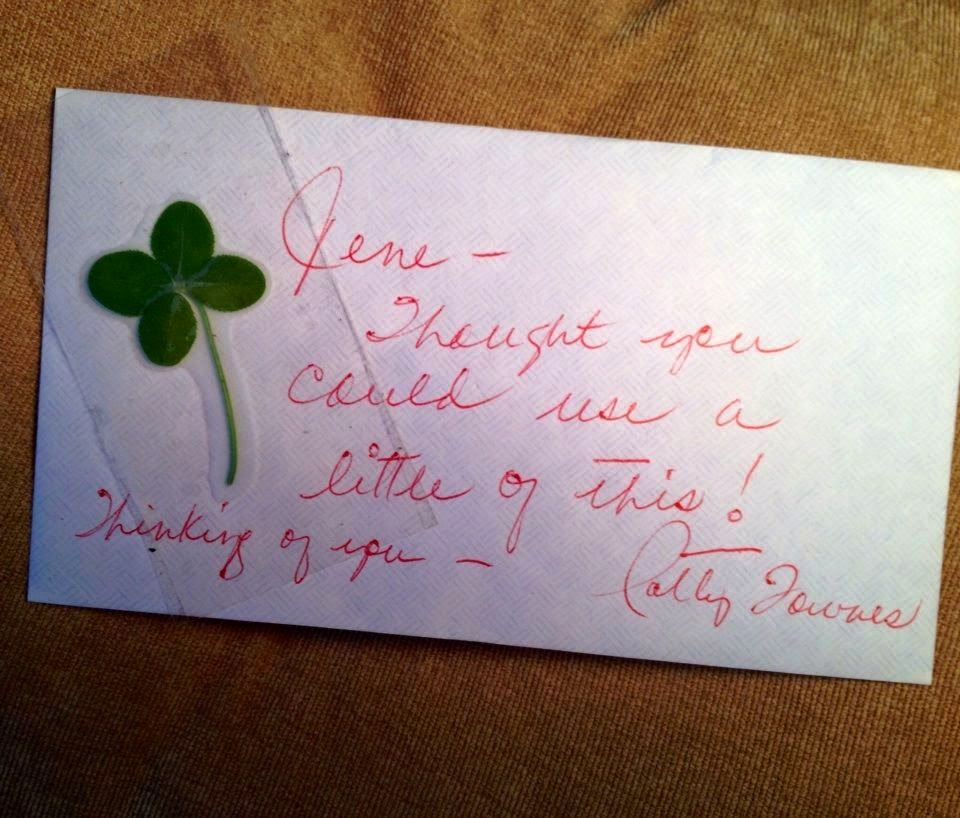 Jene -
Thought you
could use a
little of this!
Thinking of you -
Patty Townes